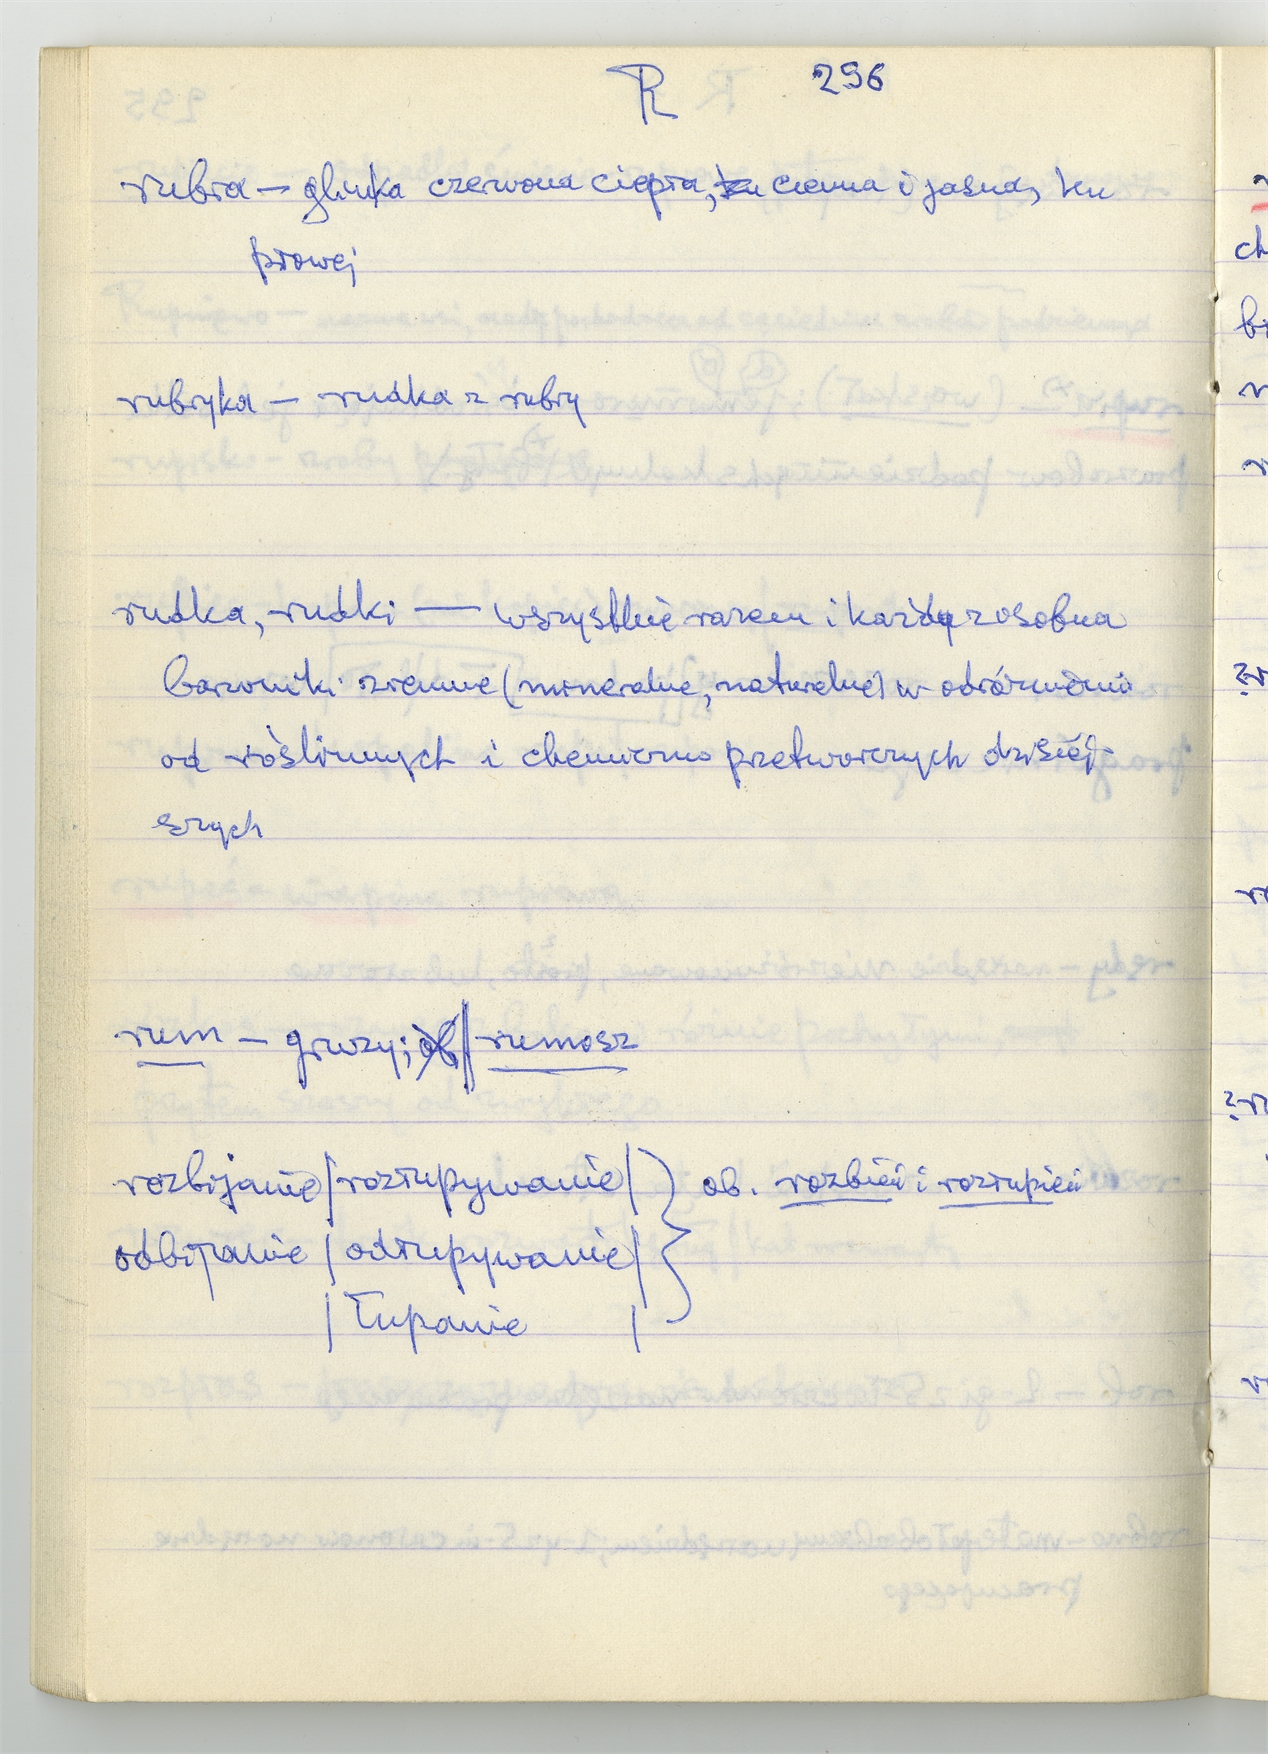 R 296
rubra — glinka czerwona ciepła, ku ciemna i jasna, ku
płowej
rubryka — rudka z rubry
rudka, rudki — wszystkie razem i każdy z osobna
barwniki ziemne (mineralne, naturalne) w odróżnieniu
od roślinnych i chemiczno przetworczych dzisiej-
szych
rum — gruzy; ob || rumosz
rozbijanie | rozłupywanie | } ob. rozbień i rozłupień
odbijanie | odłupywanie |
| łupanie |